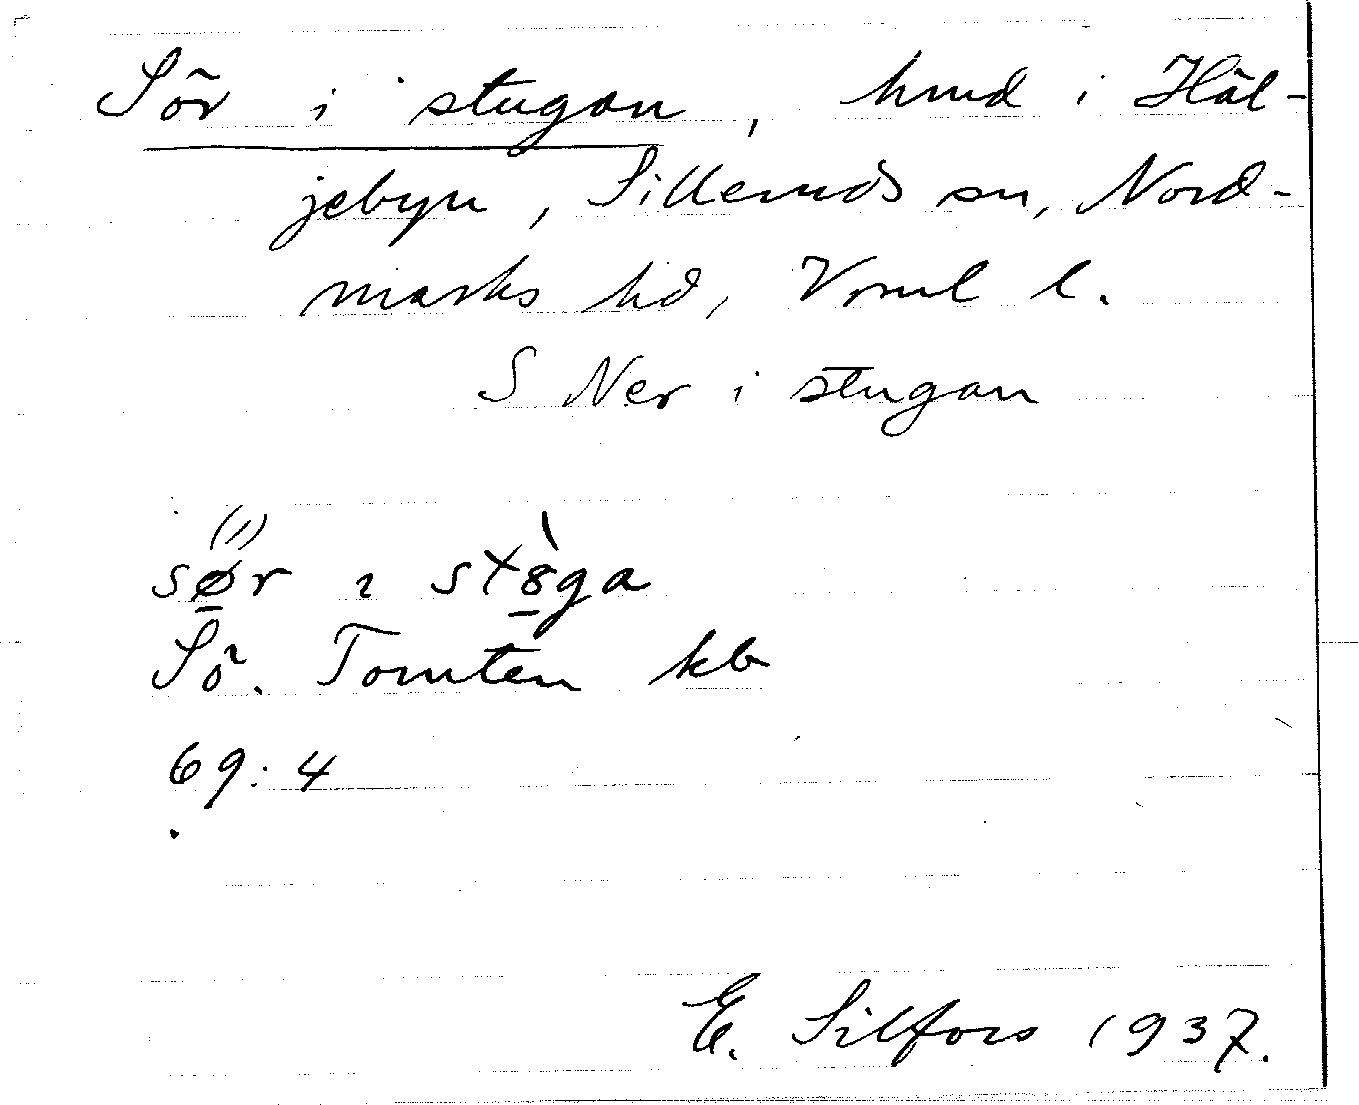 Sör i stugan, hmd i Häl-
jebyn, Silleruds sn, Nord-
marks hd, Vrml l.
S Ner i stugan
sør ı st8̀ga
Sö. Tomten kb
69:4
E. Silfors 1937.